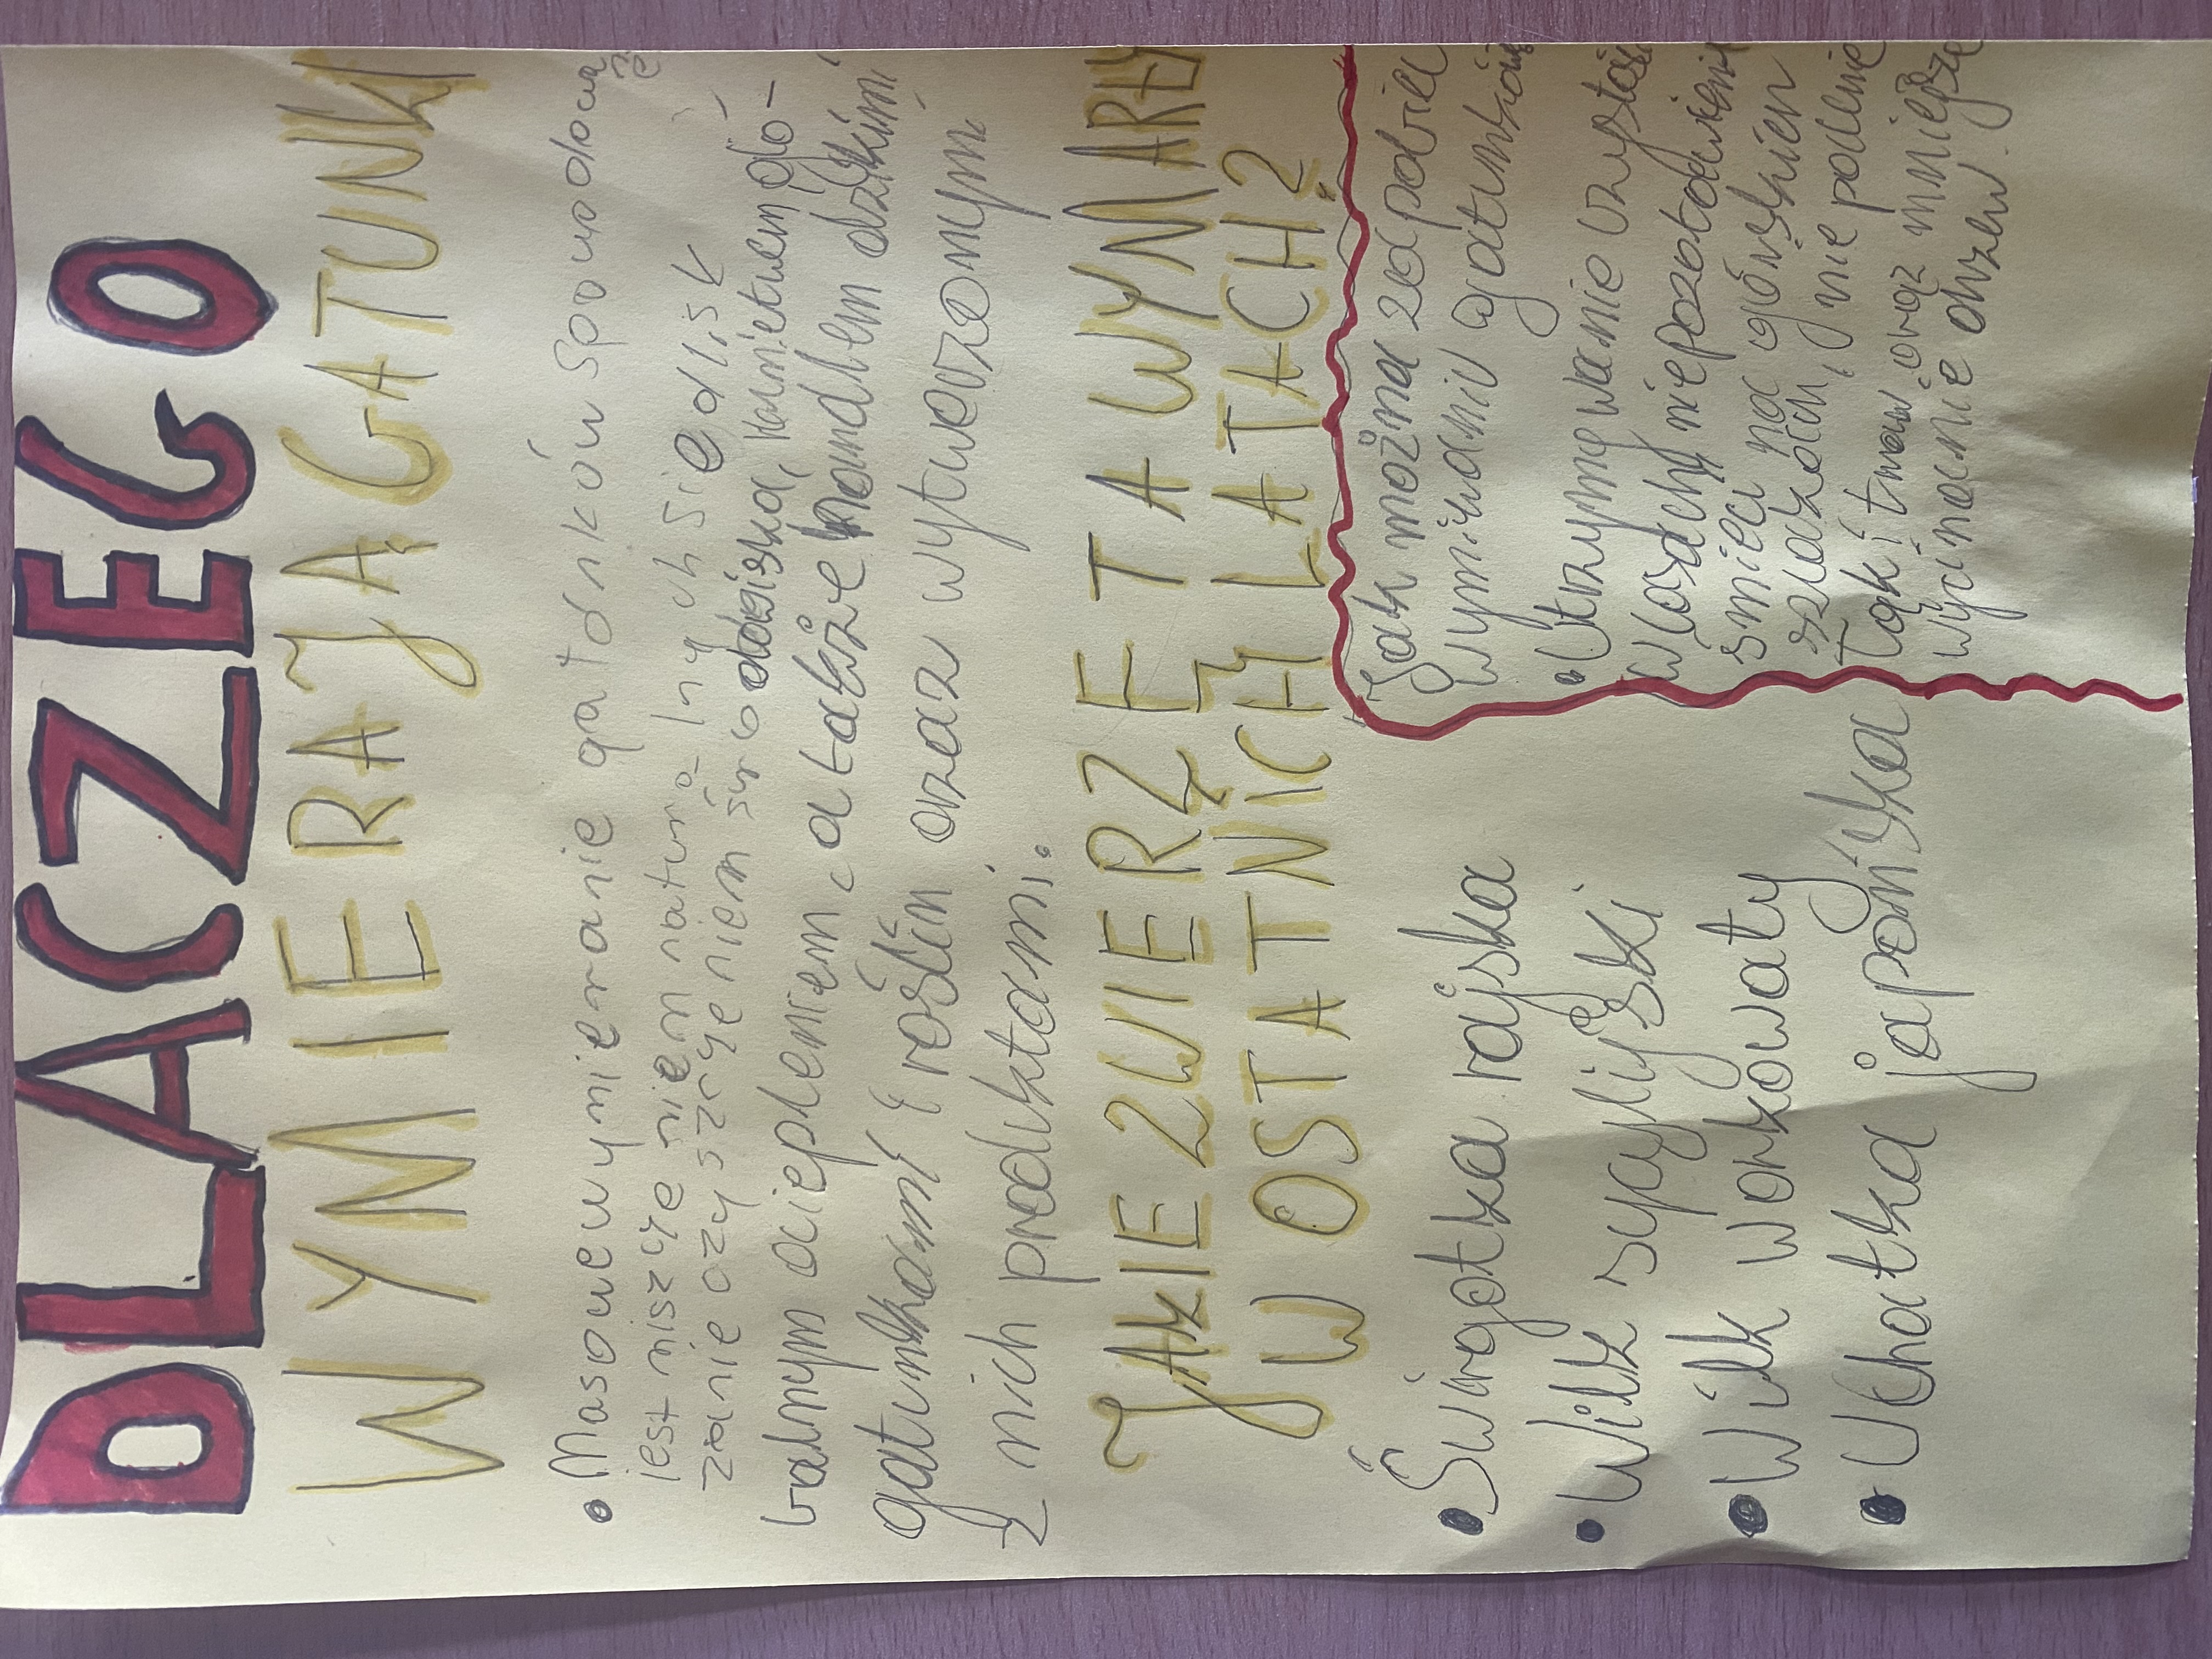 DLACZEGO
WYMIERAJĄ GATUNKI
• Masowe wymieranie gatunków spowodowane
jest niszczeniem naturalnych siedlisk
zanieczyszczeniem środowiska, konsekwem glo-
balnym ociepleniem, a także handlem dzikimi
gatunkami i roślin oraz wytworzonymi
z nich produktami.
JAKIE ZWIERZĘTA WYMARŁY
W OSTATNICH LATACH?
• Świrgotka rajska
• Wilk sycylijski
• Wilk workowaty
• Uchatka japońska
Jak można zapobiec
wymiraniu gatunków
• Utrzymywanie czystości
w lasach, niepozostawienie
śmieci na górskich
szlakach, nie polenie
Tąki traw oraz mniejsze
wycinanie drzew.